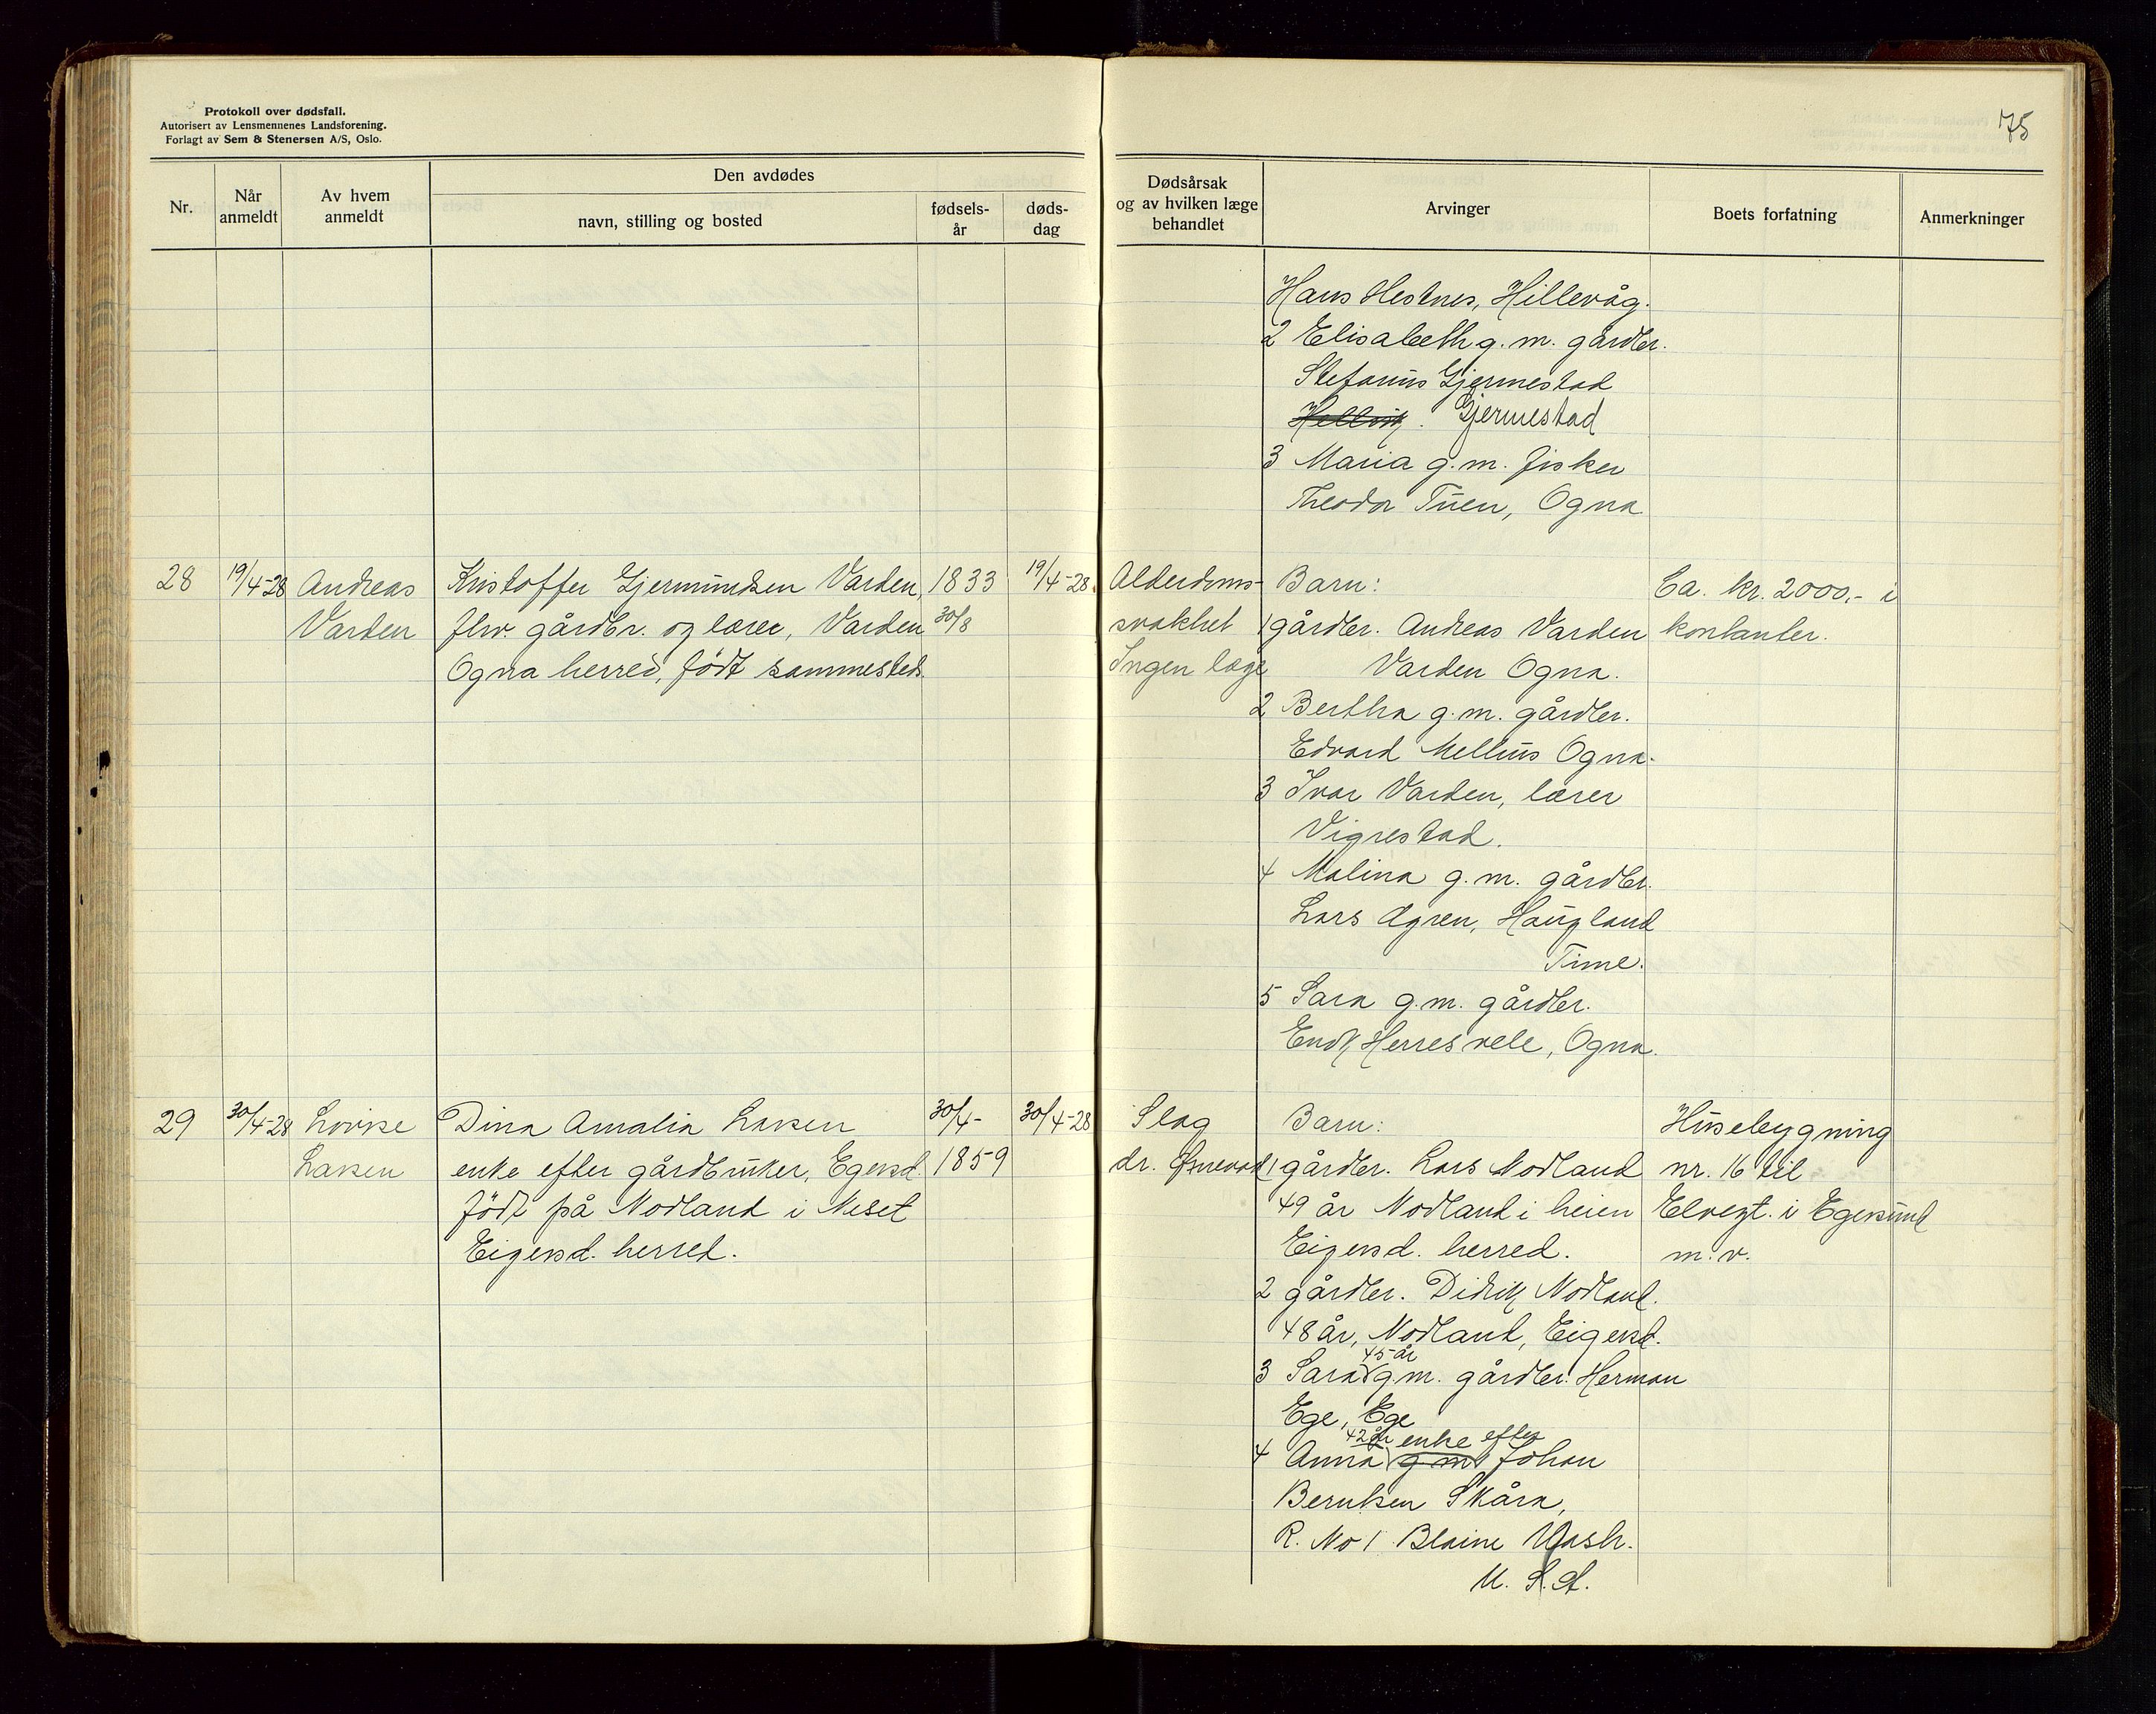 Protokoll over dødsfall.
Autorisert av Lensmennenes Landsforening.
Forlagt av Sem & Stenersen A/S, Oslo.
75
Nr.
Når anmeldt
Av hvem anmeldt
Den avdødes
navn, stilling og bosted
fødsels-
år
døds-
dag
Dødsårsak
og av hvilken læge
behandlet
Arvinger
Boets forfatning
Anmerkninger
Hans Hestnes, Hillevåg.
2 Elisabeth g. m. gårdbr.
Stefanus Gjermestad
Hellvik. Gjermestad
3 Maria g. m. fisker
Theodor Tuen, Ogna
28 19/4-28 Andreas Kristoffer Gjermundsen Varden, 1833 19/4-28. Alderdoms- Barn: Ca. kr. 2000,- i
Varden fhv. gårdbr. og lærer, Varden 30/8 svakhet 1 gårdbr. Andreas Varden kontanter.
Ogna herred, født sammesteds. Ingen læge Varden Ogna.
2 Bertha g. m. gårdbr.
Edvard Mellus Ogna.
3 Ivar Varden, lærer
Vigrestad.
4 Malina g. m. gårdbr.
Lars Haugland
Time.
5 Sara g. m. gårdbr.
Endr. Herresvele, Ogna.
29 30/4-28 Lovise Dina Amalia Larsen 30/4- 30/4-28 Slag Barn: Husebygning
Larsen enke efter gårdbruker, Egersd. 1859 dr. 1 gårdbr. Lars Nodland nr. 16 til
født på Nodland i Neset 49 år Nodland i heien Elvegt. i Egersund
Eigersd. herred. Eigersd. herred. m. v.
2 gårdbr. Didrik Nodland.
48 år, Nodland, Eigersd.
45 år
3 Sara g. m. gårdbr. Herman
Ege, Ege
42 år enke efter
4 Anna g m Johan
Berntsen Skåra,
R. No 1 Blaine Wash.
U. S. A.